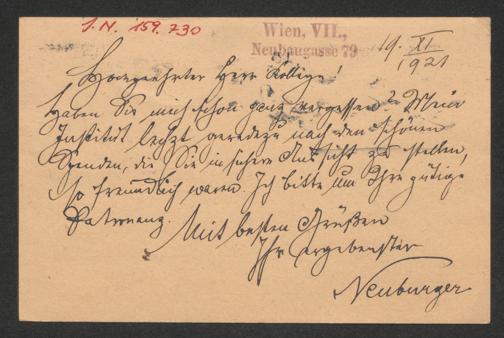 J. N. 159.730
Wien, VII.,
Neubaugasse 79
19. XI
1921
Hochgeehrter Herr Kollege!
Haben Sie mich schon ganz vergessen? Mein
Institut lechzt geradezu nach den schönen
Spenden, die Sie in sichere Aussicht zu stellen
so freundlich waren. Ich bitte um Ihre gütige
Patronanz.
Mit besten Grüßen
Ihr ergebenster
Neuburger